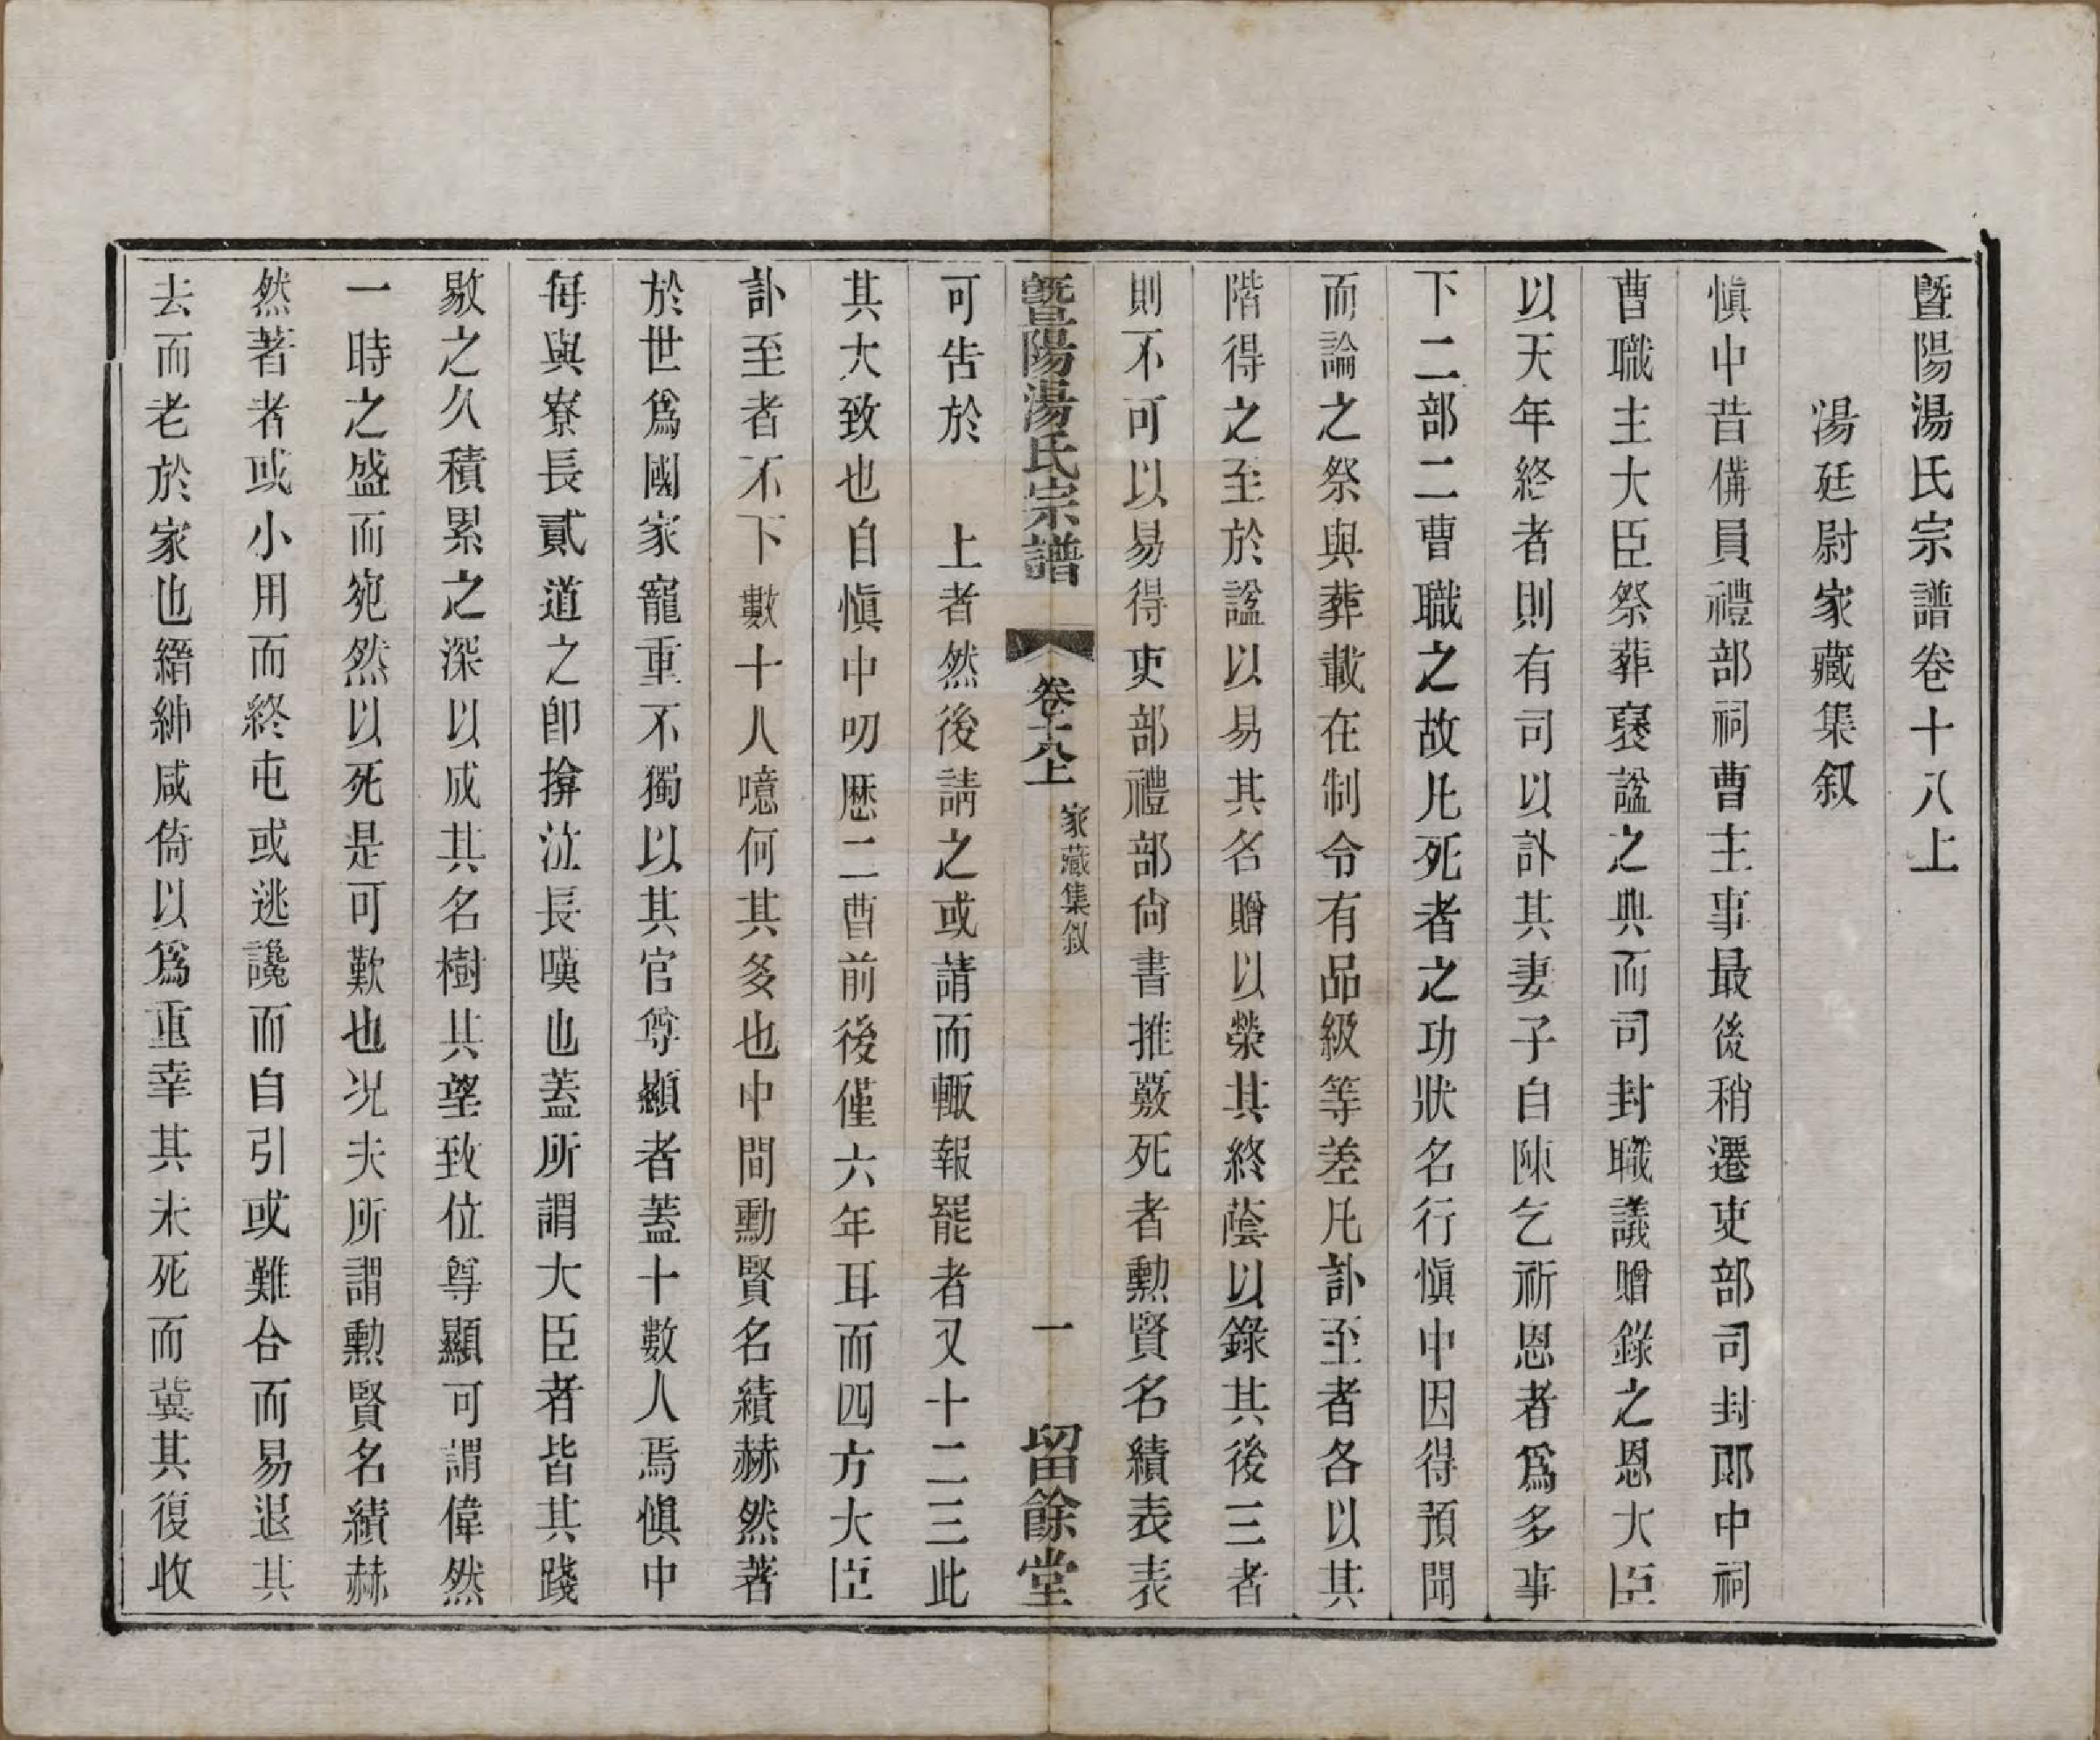 暨陽湯氏宗譜卷十八上
湯廷尉家藏集叙
愼中昔備員禮部祠曹主事最後稍遷吏部司封郎中祠
曹職主大臣祭葬襃諡之典而司封職議贈錄之恩大臣
以天年終者則有司以訃其妻子自陳乞祈恩者爲多事
下二部二曹職之故凡死者之功狀名行愼中因得預聞
而論之祭與葬載在制令有品級等差凡訃至者各以其
階得之至於諡以易其名贈以榮其終蔭以錄其後三者
則不可以易得吏部禮部尙書推覈死者勳賢名績表表
暨陽湯氏宗譜 卷十八上 家藏集叙 一 留餘堂
可告於 上者然後請之或請而輙報罷者又十二三此
其大致也自愼中叨歷二曹前後僅六年耳而四方大臣
訃至者不下數十人噫何其多也中間勳賢名績赫然著
於世爲國家寵重不獨以其官尊顯者蓋十數人焉愼中
每與寮長貳道之卽揜泣長嘆也蓋所謂大臣者皆其踐
敭之久積累之深以成其名樹其望致位尊顯可謂偉然
一時之盛而宛然以死是可歎也况夫所謂勳賢名績赫
然著者或小用而終屯或逃讒而自引或難合而易退其
去而老於家也縉紳咸倚以爲重幸其未死而冀其復收